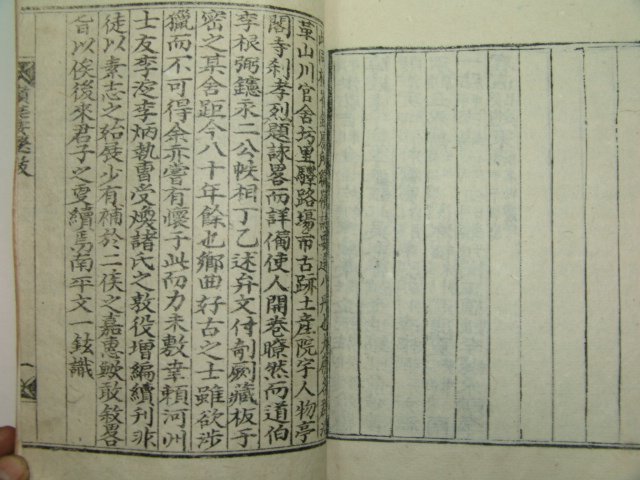 革山川官舍坊里驛路場市古跡土産院宇人物亭
閣寺刹孝烈題詠畧而詳備使人開卷瞭然而道伯
李根弼二公帙相丁乙述弁文付剞劂藏板于
密之某舍距今八十年餘也鄉曲好古之士雖欲涉
獵而不可得余亦嘗有懷于此而力未敷幸賴河州
士友李李炳執曺受煥諸氏之敦役增編續刊非
徒以素志之紿展少有補於二侯之嘉惠歟敢敘畧
旨以俟後來君子之更續焉南平文一鉉識
一